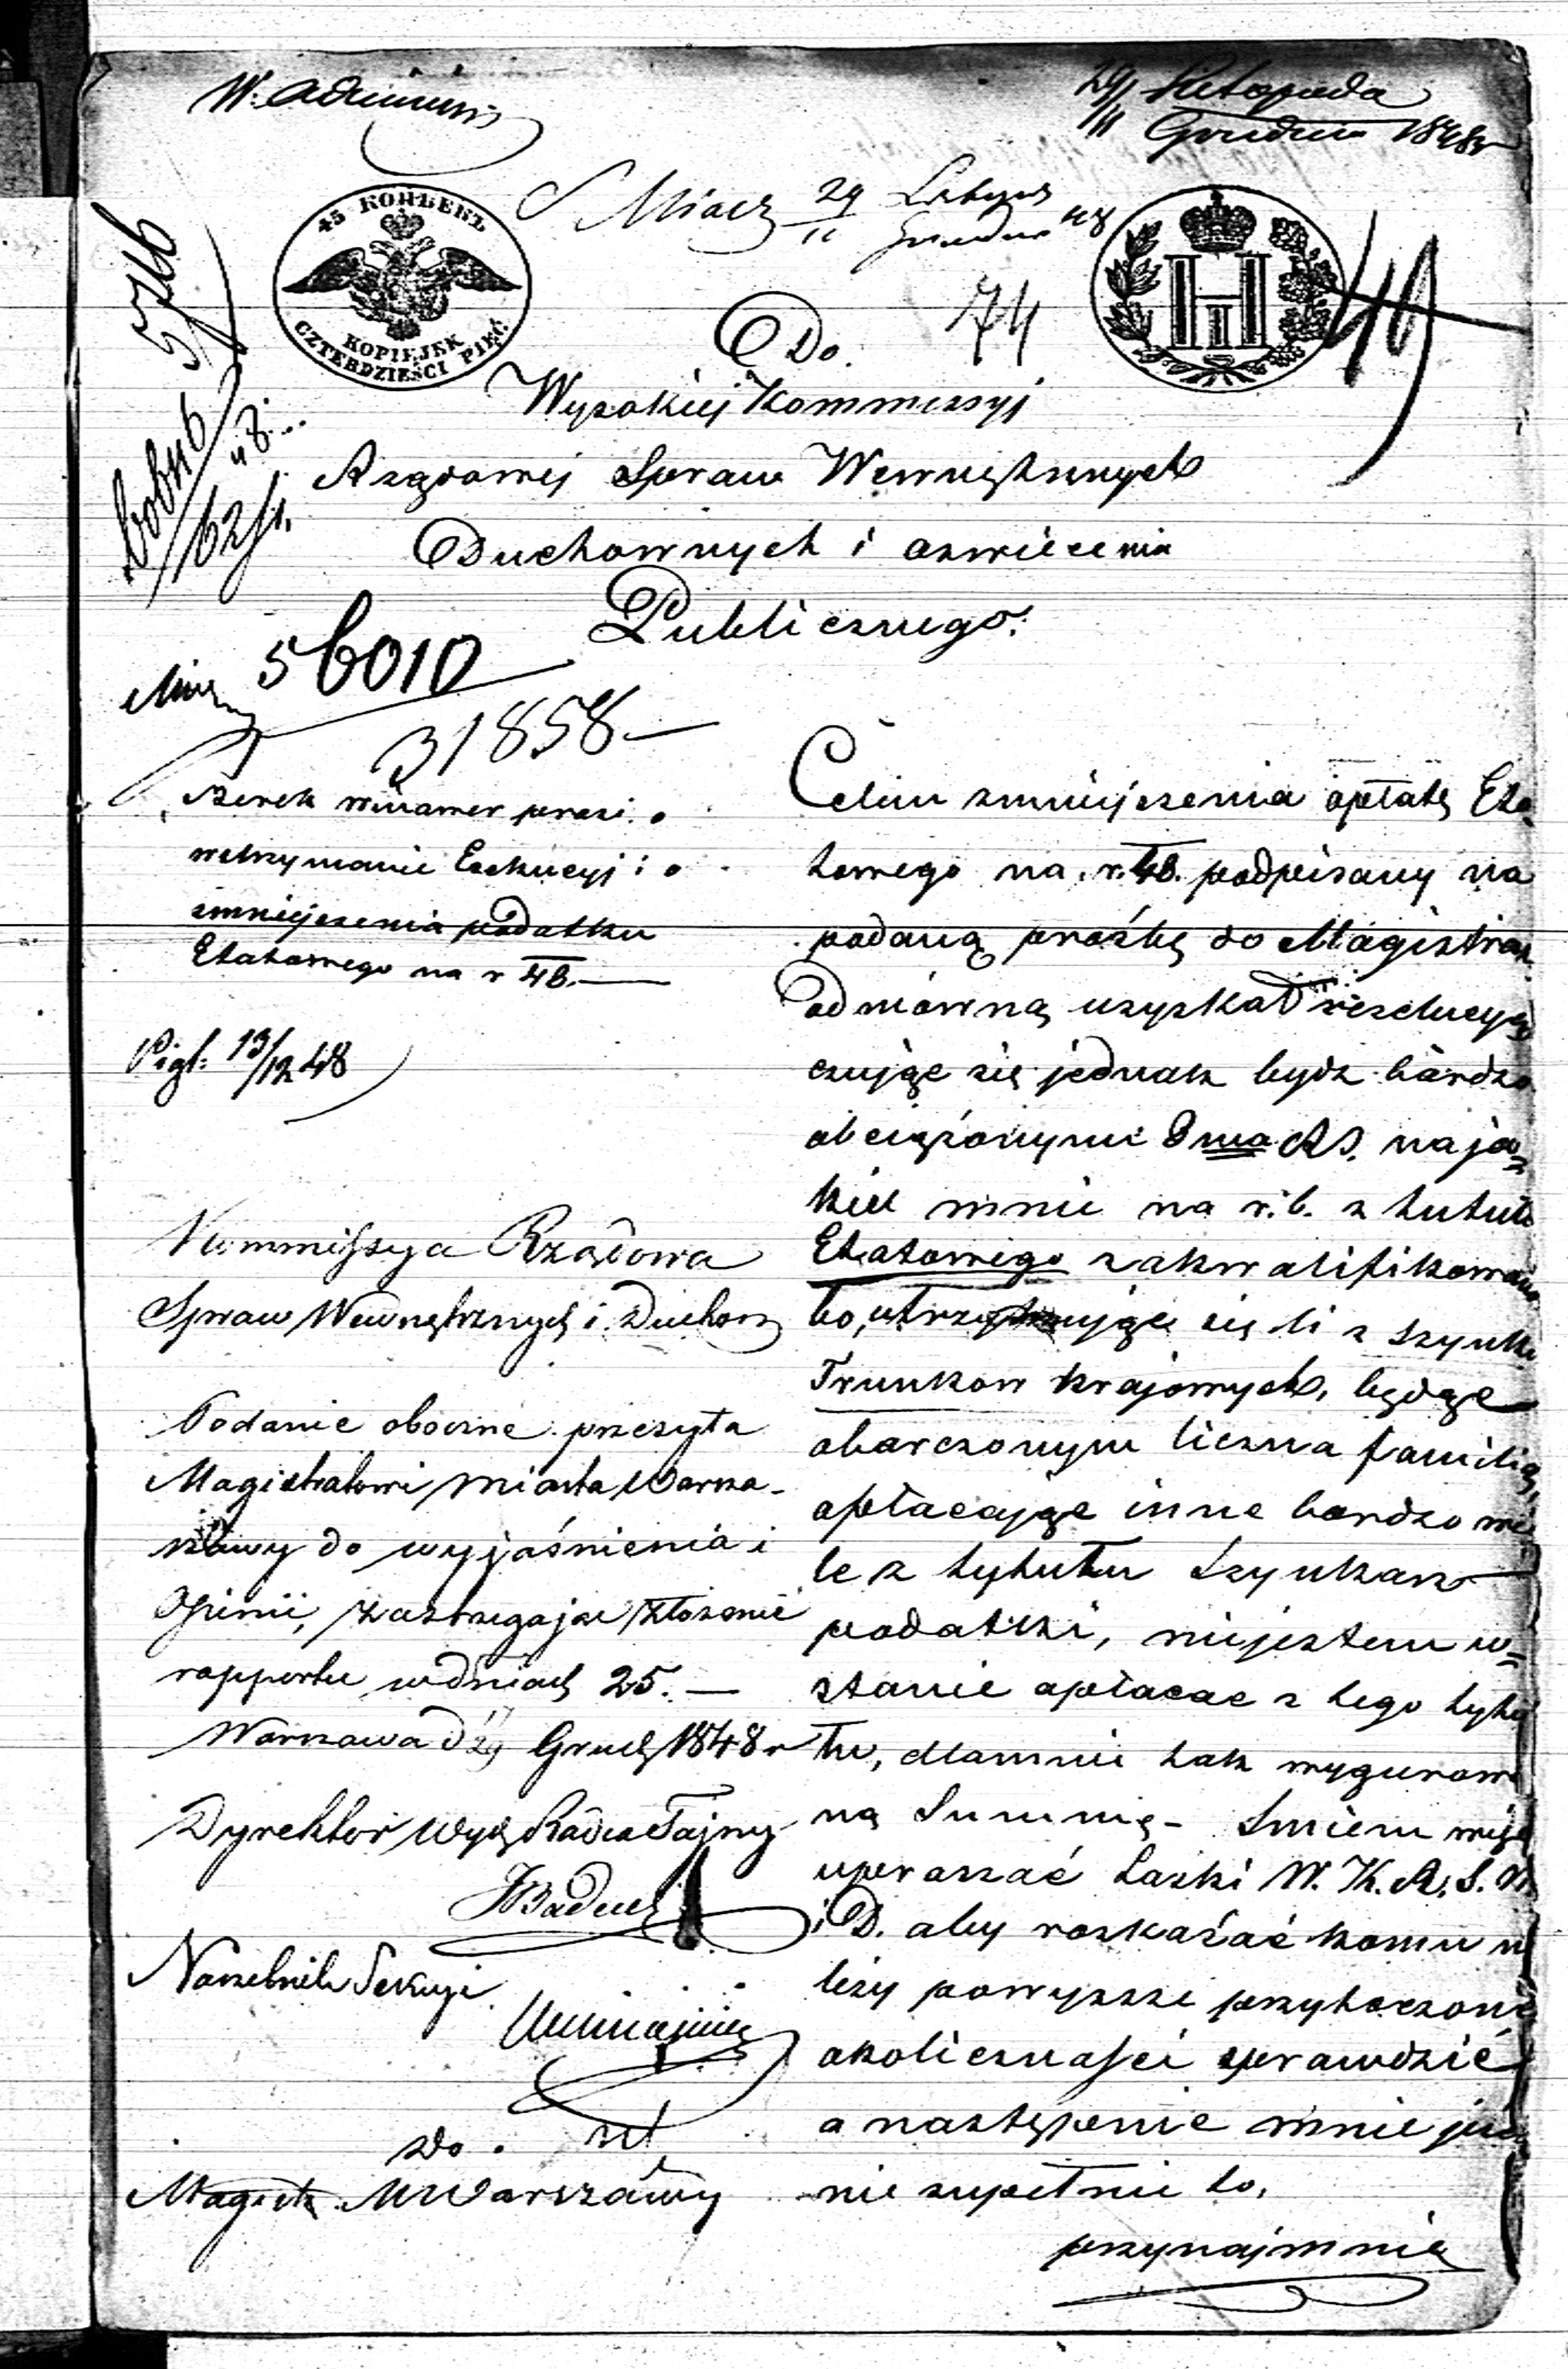 29/11 Listopada
Grudnia 1848r
S Miasz 29/11 Listopad
Grudnia 48
45 КОПѢЕКЪ
KOPIEJEK
CZTERDZIEŚCI PIĘĆ
74
49
Do
Wysokiej Kommissyj
Rządowej Spraw Wewnętrznych
Duchownych i oswiecenia
Publicznego.
56010
31858
Berek prosi o
wstrzymanie Exekucyj i o
zmniejszenia podatku
Etatowego na r 48.
13/12 48
Kommissya Rządowa
Spraw Wewnętrznych i Duchow
Podanie oboczne przesyła
Magistratowi Miasta Warsza-
wy do wyjaśnienia i
Opinii, zastrzegając złożenie
rapportu w dniach 25. —
Warszawa d 17/29 Grud 1848 r
Dyrektor Wydz Radca Tajny
Naczelnik Sekcyi
Do
Magistr M Warszawy
Celem zmniejszenia opłaty Eta-
towego na r. 48. podpisany na
podaną prośbę do Magistrat
odmówną uzyskał rezolucyę
czując się jednak bydz bardzo
obciążonymi 8ma RS. na ja-
kiei mnie na r. b. z tytułu
Etatowego zakwalifikowano
bo, utrzymując się li z szynku
Trunkow krajowych, będąc
obarczonym liczna familią,
opłacając inne bardzo wie
le z tytułu szynkars
podatki, niejestem w-
stanie opłacac z tego tytu
łu, dlamnie tak wygurowa
ną Summę - Smiem więc
upraszać Łaski W. K. R. S. W.
i D. aby roskazać komu na
leży powyższe przytoczone
okoliczności sprawdzić
a następnie mnie już
nie zupełnie to,
przynajmnie